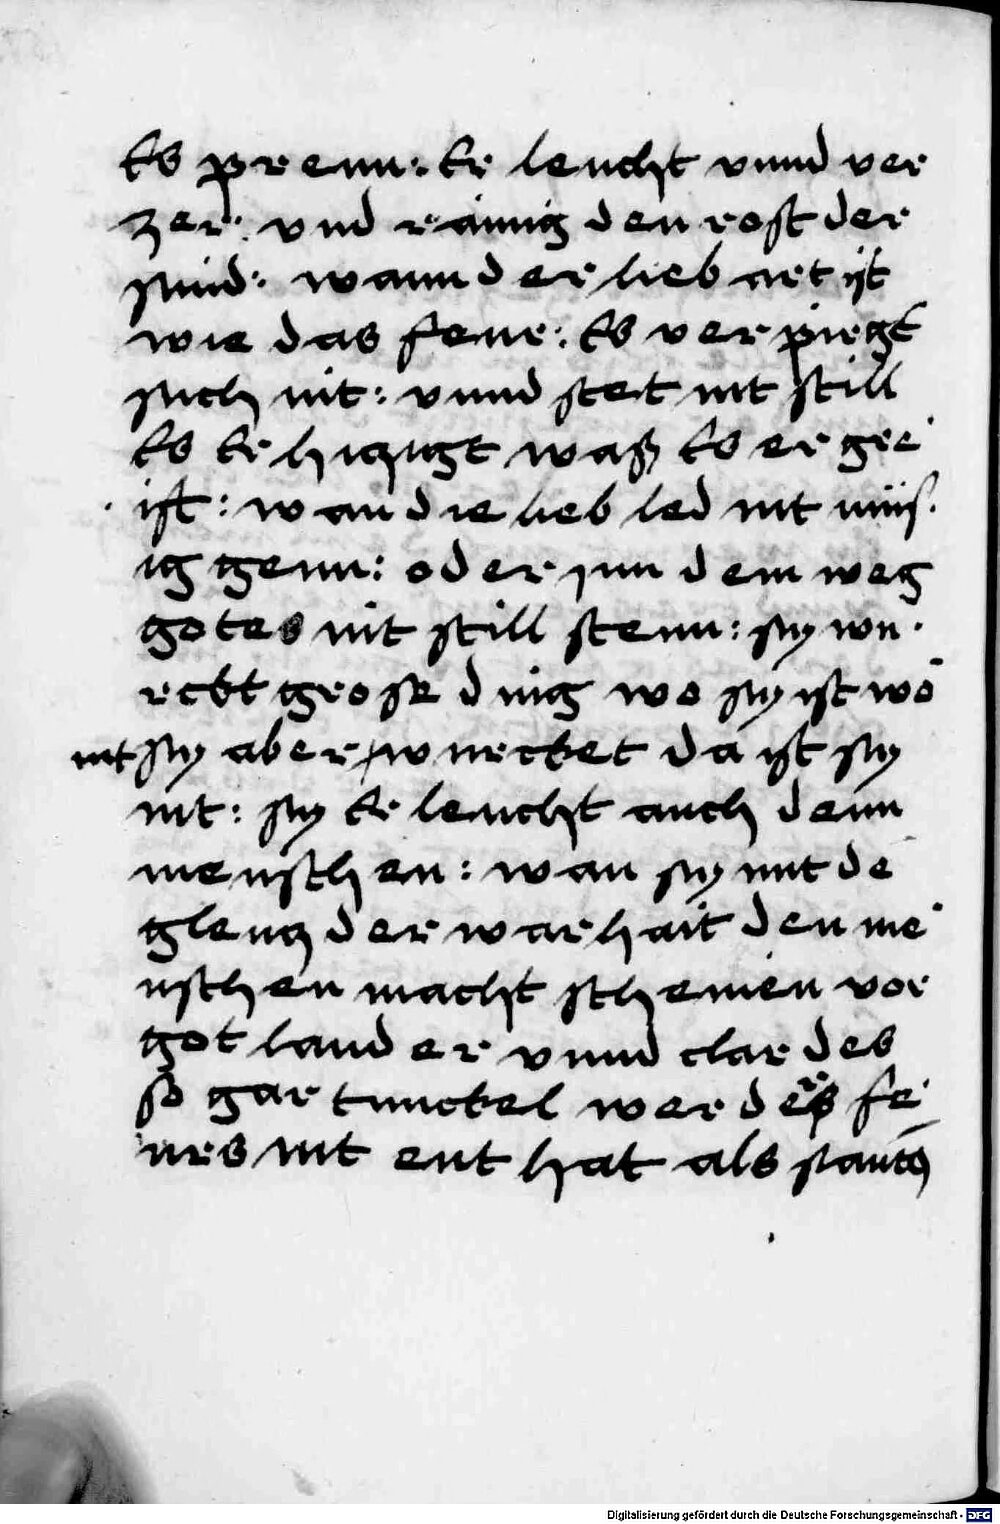 Es prenn: Er leucht vnnd ver
zer: vnd rainig den rost der
sund: wann der lieb art ist
wie das feur: Es verpirgt
sich nit: vnnd stet nit still
Es Erhiczigt waß Es ergrei
ist: wan die lieb led nit müs
ig genn: oder jnn dem weg
gotes nit still stenn: sy wu
rckt grose ding wo sy ist wo
sy aber nit wurcket da ist sy
nit: sy Erleucht auch denn
menschen: wan sy mit de
glencz der warhait den me
nschen macht scheinen vor
got lauder vnnd clar des
so gar tunckel werders fe
urs nit enthat als